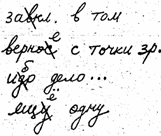 заκл. в том
верное с точки зр.
ибо дело...
ищу одну